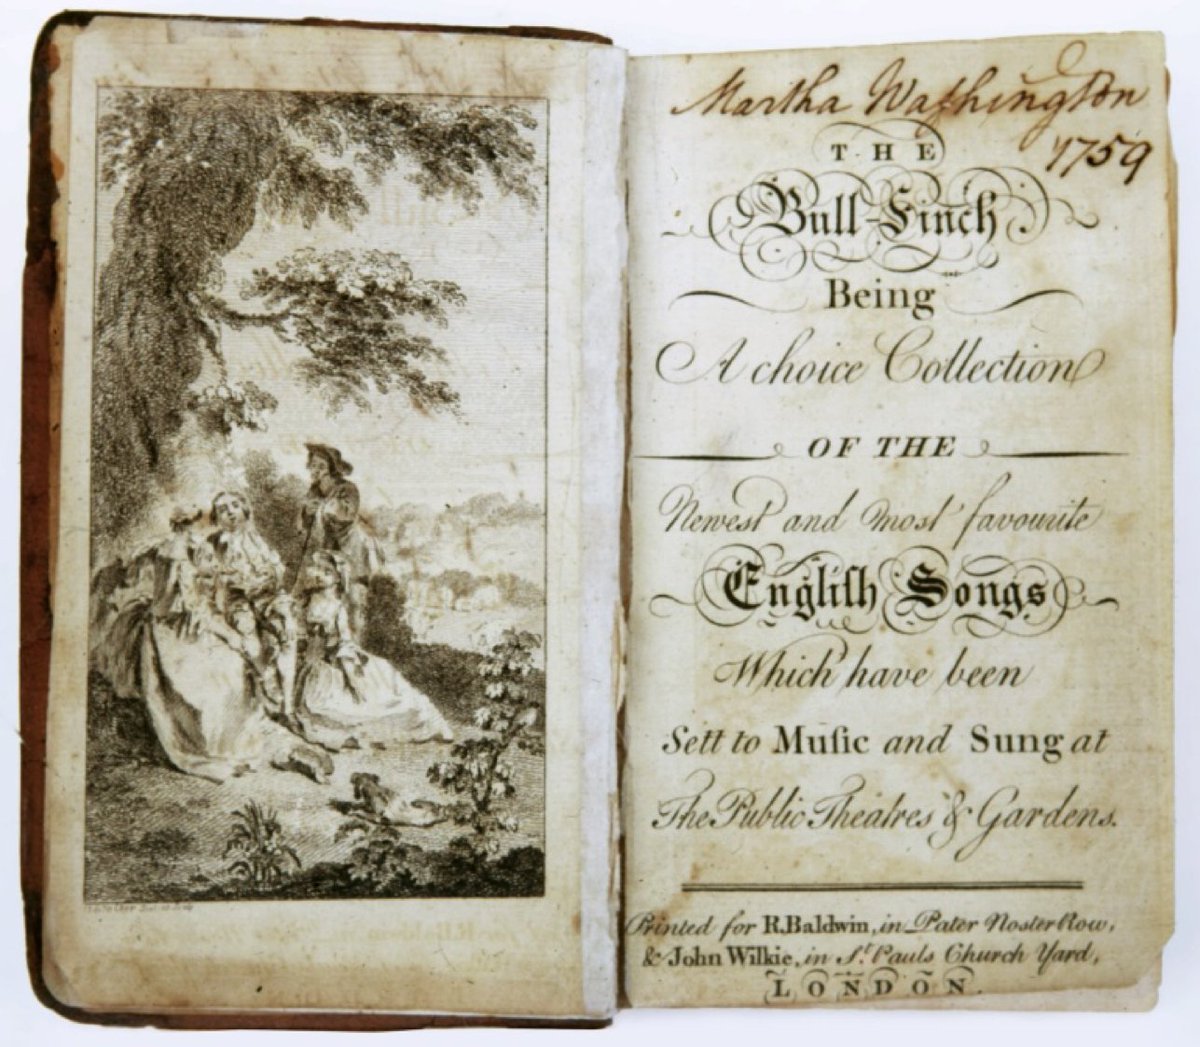 Martha Washington
1759
THE
Bull-Finch.
Being
A choice Collection
OF THE
Newest and most favourite
Engliſh Songs
Which have been
Sett to Muſic and Sung at
The Public Theatres & Gardens.
Printed for R. Baldwin, in Pater Noster Row,
& John Wilkie, in St. Pauls Church Yard,
LONDON.